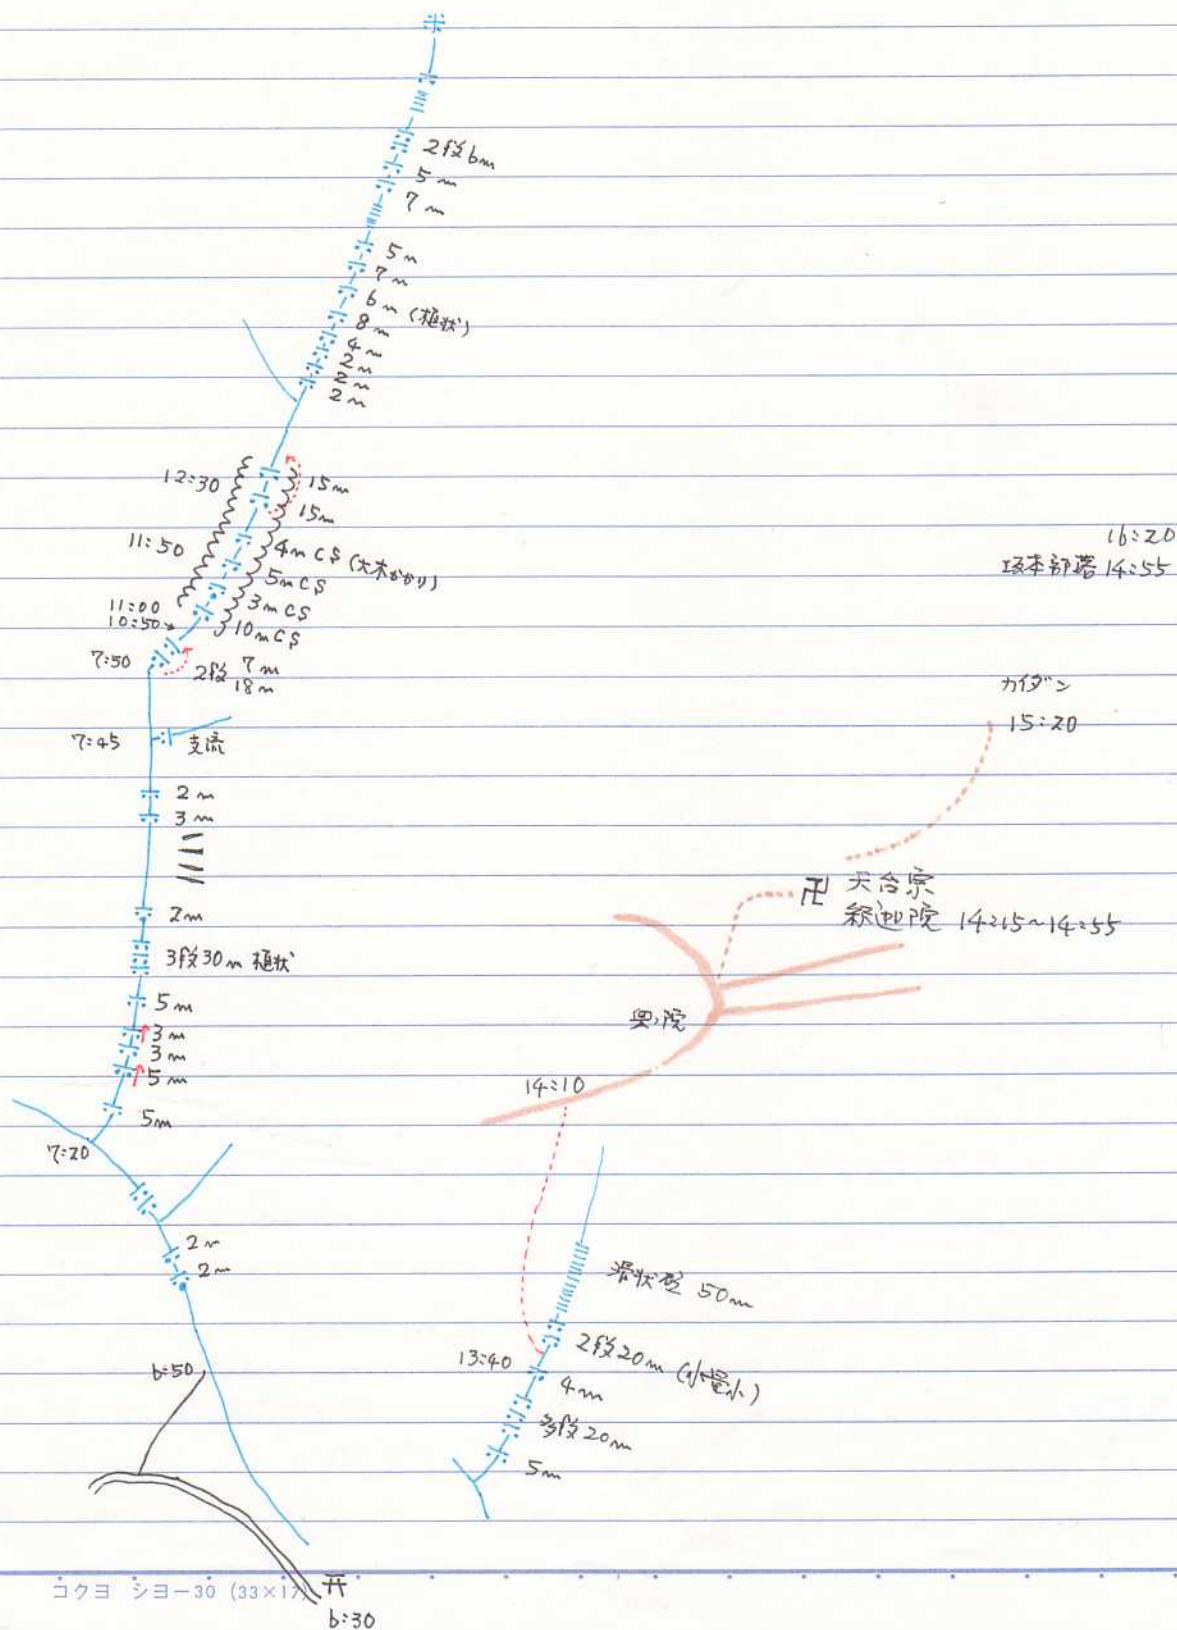 2段6m
5m
7m
5m
7m
6m (樋状)
8m
4m
2m
2m
2m
12:30
15m
15m
11:50
4mCS (大木かかり)
5mCS
3mCS
10mCS
11:00
10:50
7:50
2段 7m
18m
7:45
支流
2m
3m
2m
3段30m 樋状
5m
3m
3m
5m
5m
7:20
2m
2m
6:50
コクヨ シヨー30 (33×17)
6:30
16:20
坂本部落 14:55
カイダン
15:20
卍 天台宗
釈迦院 14:15~14:55
奥ノ院
14:10
滑状 50m
2段20m (水量小)
13:40
4m
多段20m
5m